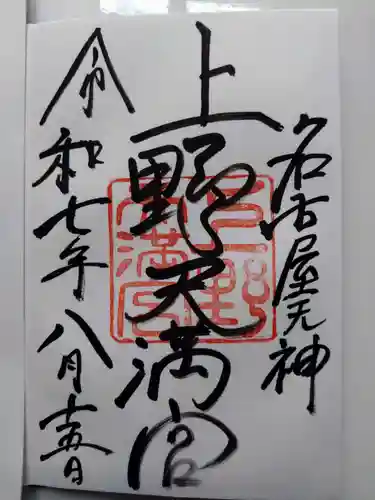 名古屋天神
上野天満宮
令和七年八月十五日
上野
天満宮